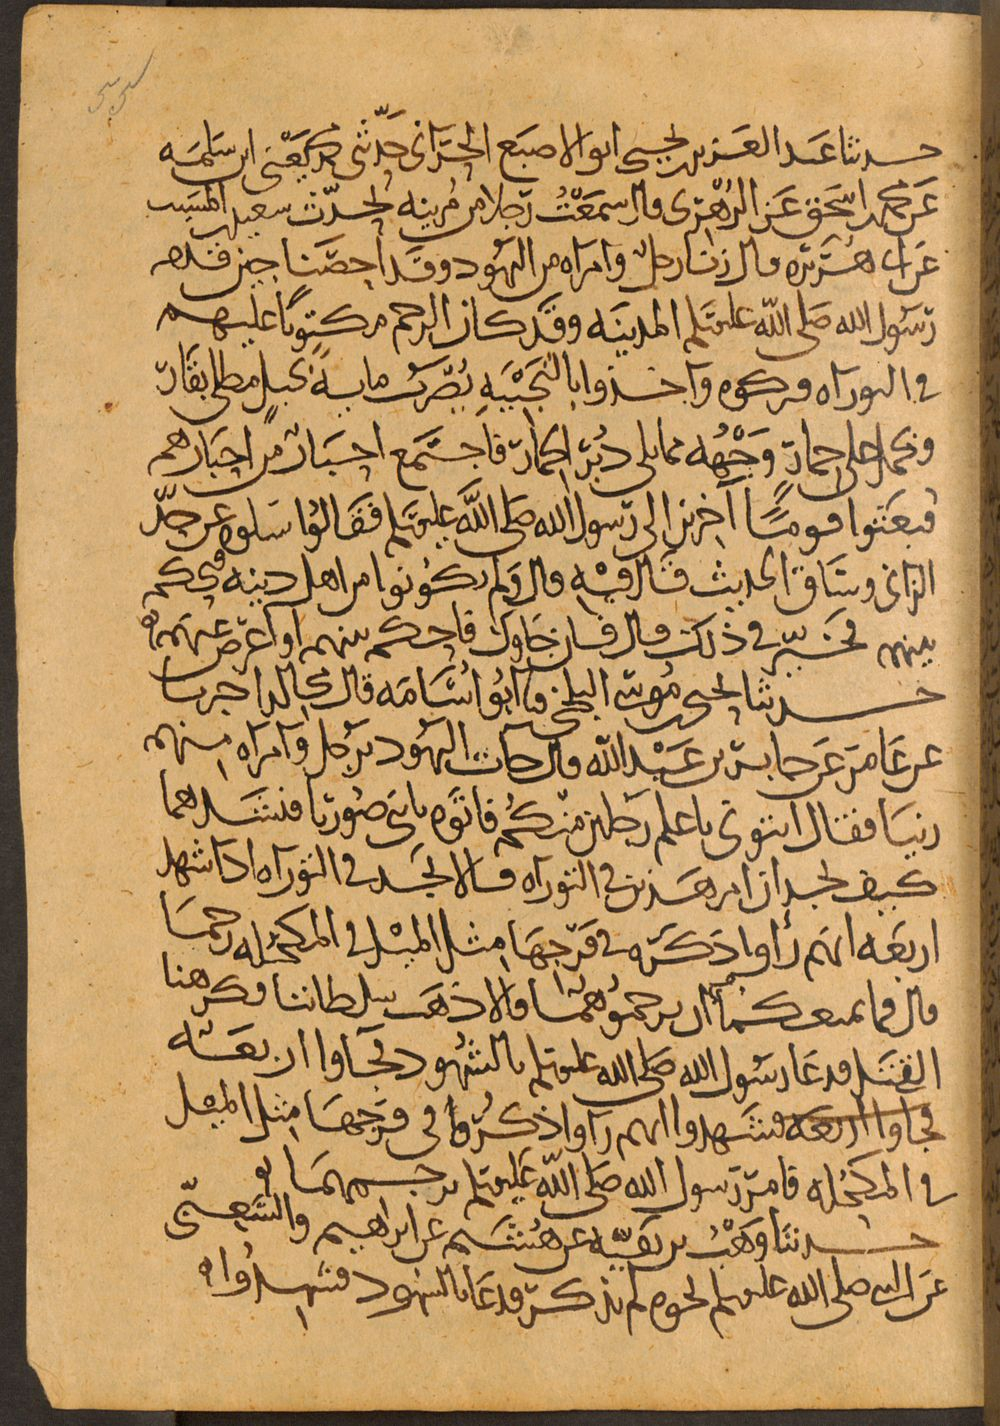 حدثنا عبد العزيز بن يحيى ابو الاصبغ الحرّانى حدّثنى محمد يعنى ابن سلمه
عن محمد بن اسحق عن الزهرى قال سمعت رجلا من مزينه يحدّث سعيد بن المسيب
عن ابى هريره قال زنا رجل وامراه من اليهود وقد احصنا حين قدم
رسول الله صلى الله عليه وسلم المدينه وقد كان الرجم مكتوبا عليهم
فى التوراه فتركوه واخذوا بالتجبيه يُضرب مايه بحبل مطلى بقار
ويحمل على حمار وجهه مما يلى دبر الحمار فاجتمع احبار من احبارهم
فبعثوا قوما آخرين الى رسول الله صلى الله عليه وسلم فقالوا سلوه عن حدّ
الزانى وساق الحديث قال فيه قال ولم يكونوا من اهل دينه فيحكم
بينهم فخيّر فى ذلك قال فان جاوك فاحكم بينهم او اعرض عنهم
حدثنا يحيى بن موسى البلخى نا ابو اسامه قال مجالد اخبرنا
عن عامر عن جابر بن عبد الله قال جات اليهود برجل وامراه منهم
زنيا فقال ايتونى باعلم رجلين منكم فاتوه بابنى صوريا فنشدهما
كيف تجدان امر هذين فى التوراه قالا نجد فى التوراه اذا شهد
اربعه انهم رأوا ذكره فى فرجها مثل الميل فى المكحله رجما
قال فما يمنعكما ان ترجموهما قالا ذهب سلطاننا فكرهنا
القتل فدعا رسول الله صلى الله عليه وسلم بالشهود فجاوا اربعه
فجاوا اربعه فشهدوا انهم رآوا ذكره فى فرجها مثل الميل
فى المكحله فامر رسول الله صلى الله عليه وسلم برجمهما
حدثنا وهب بن بقيّه عن هشيم عن ابراهيم والشعبىّ
عن النبى صلى الله عليه وسلم نحوه لم يذكر فدعا بالشهود فشهدوا